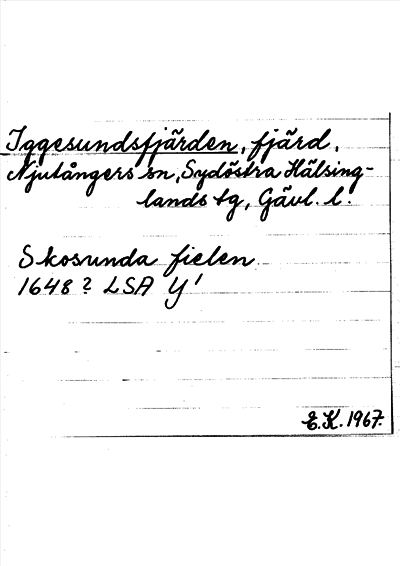 Iggesundsfjärden, fjärd,
Njutångers sn, Sydöstra Hälsing-
lands tg, Gävl. l.
Skosunda fielen
1648? LSA Y'
E.K. 1967.